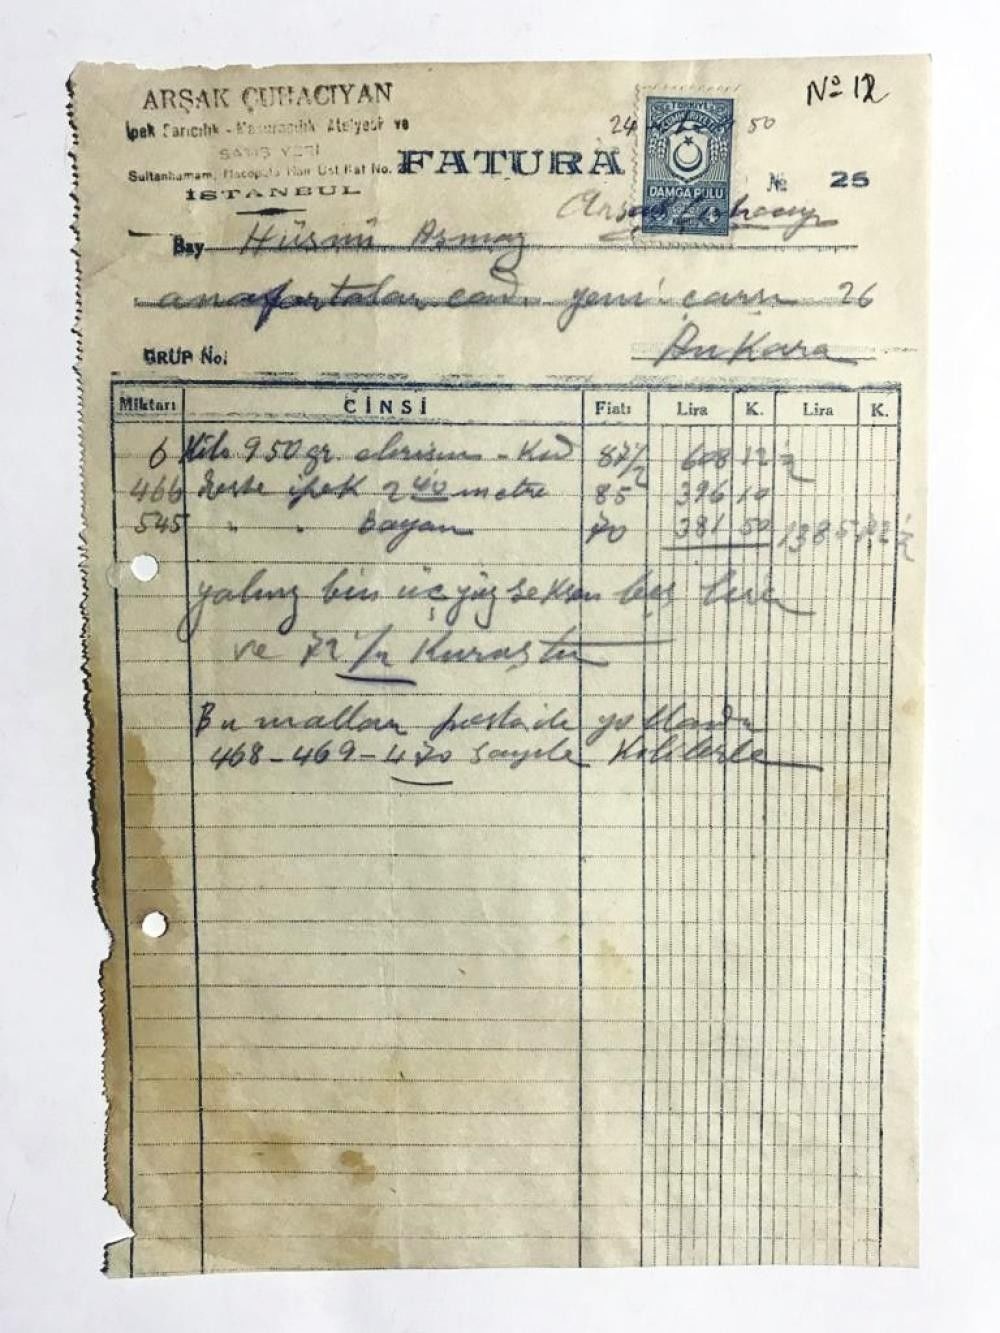 ARŞAK ÇUHACIYAN
İpek Sarıcılık - Masuracılık Atelyesi ve
SATIŞ YERİ
Sultanhamam, Macopulo Han Üst Kat No.
İSTANBUL
No 12
24 50
TÜRKİYE
CUMHURİYETİ
DAMGA PULU
FATURA
№ 25
Bay Hüsnü
anafartalar cad. yeni çarşı 26
Ankara
GRUP No:
Miktarı CİNSİ Fiatı Lira K. Lira K.
6 Kilo 950 gr. 87 1/2 608 12 1/2
466 Deste ipek 2 40 metre 85 396 10
545 " " Bayan 70 381 50 1385 72 1/2
yalnız bin üç yüz seksen beş lira
ve 72 1/2 Kuruştur
Bu malları posta ile yollandı
468-469-470 sayılı Kolilerle